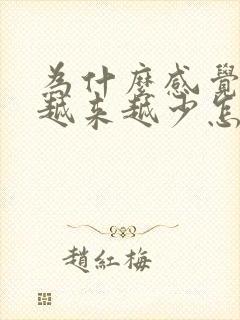 為什麼感覺
越來越少怎
趙紅梅